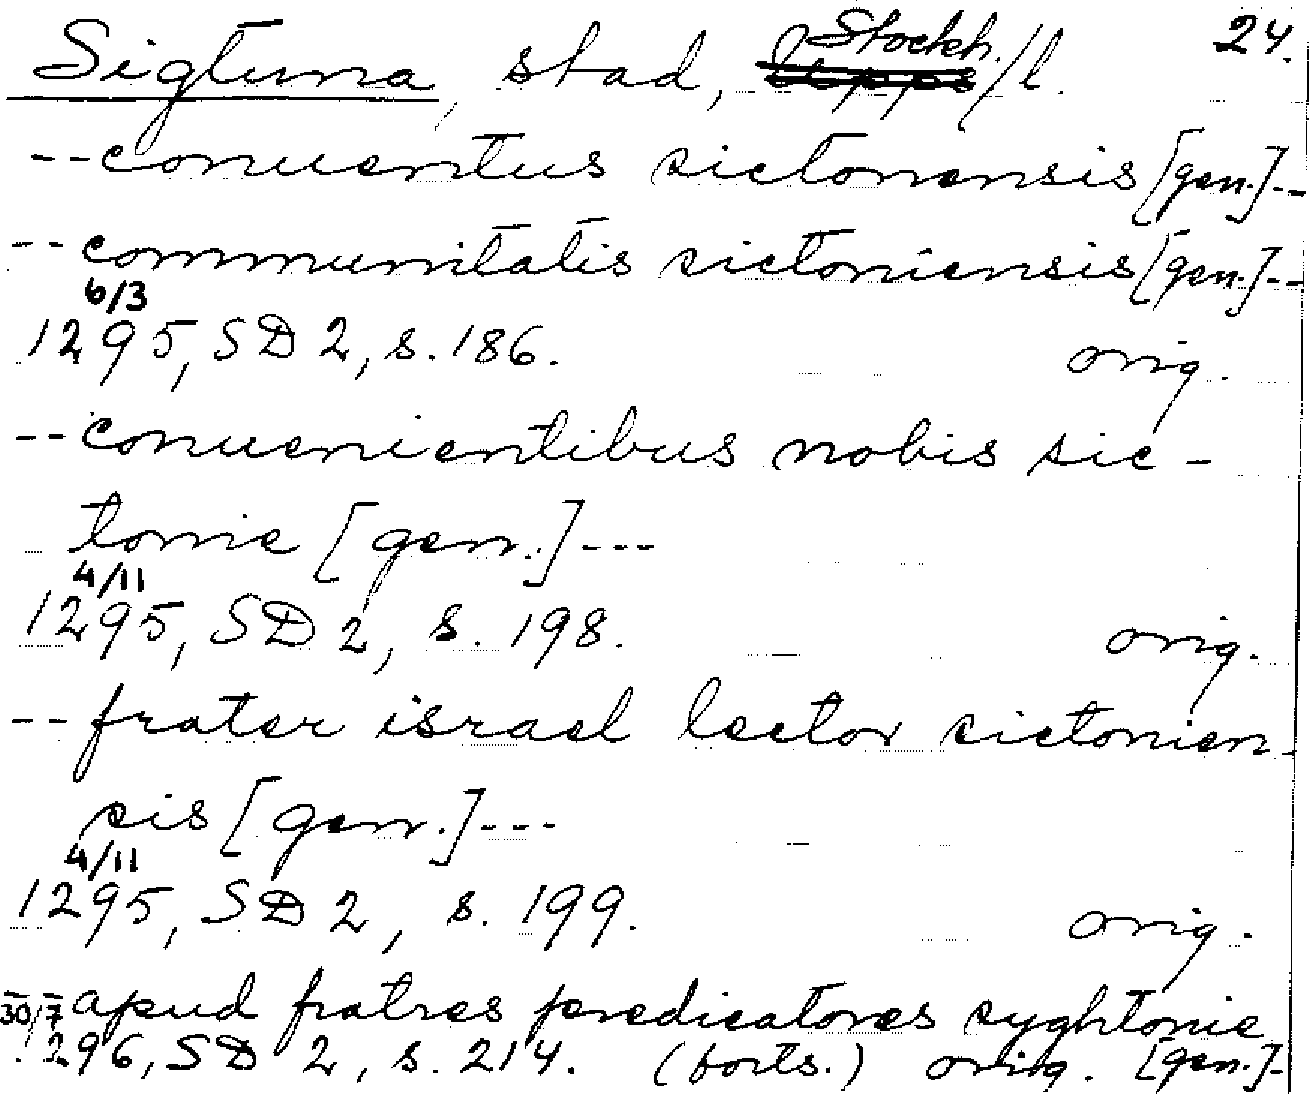 24.
Sigtuna, stad, Stockh./l.
--conuentus sictonensis [gen.]--
--communitatis sictoniensis [gen.]--
6/3
1295, SD 2, s. 186. orig.
--conuenientibus nobis sic-
tonie [gen.]---
4/11
1295, SD 2, s. 198. orig.
--frater israel lector sictonien-
sis [gen.]---
4/11
1295, SD 2, s. 199. orig.
--apud fratres predicatores syghtonie
30/7
1296, SD 2, s. 214. (forts.) orig. [gen.]-